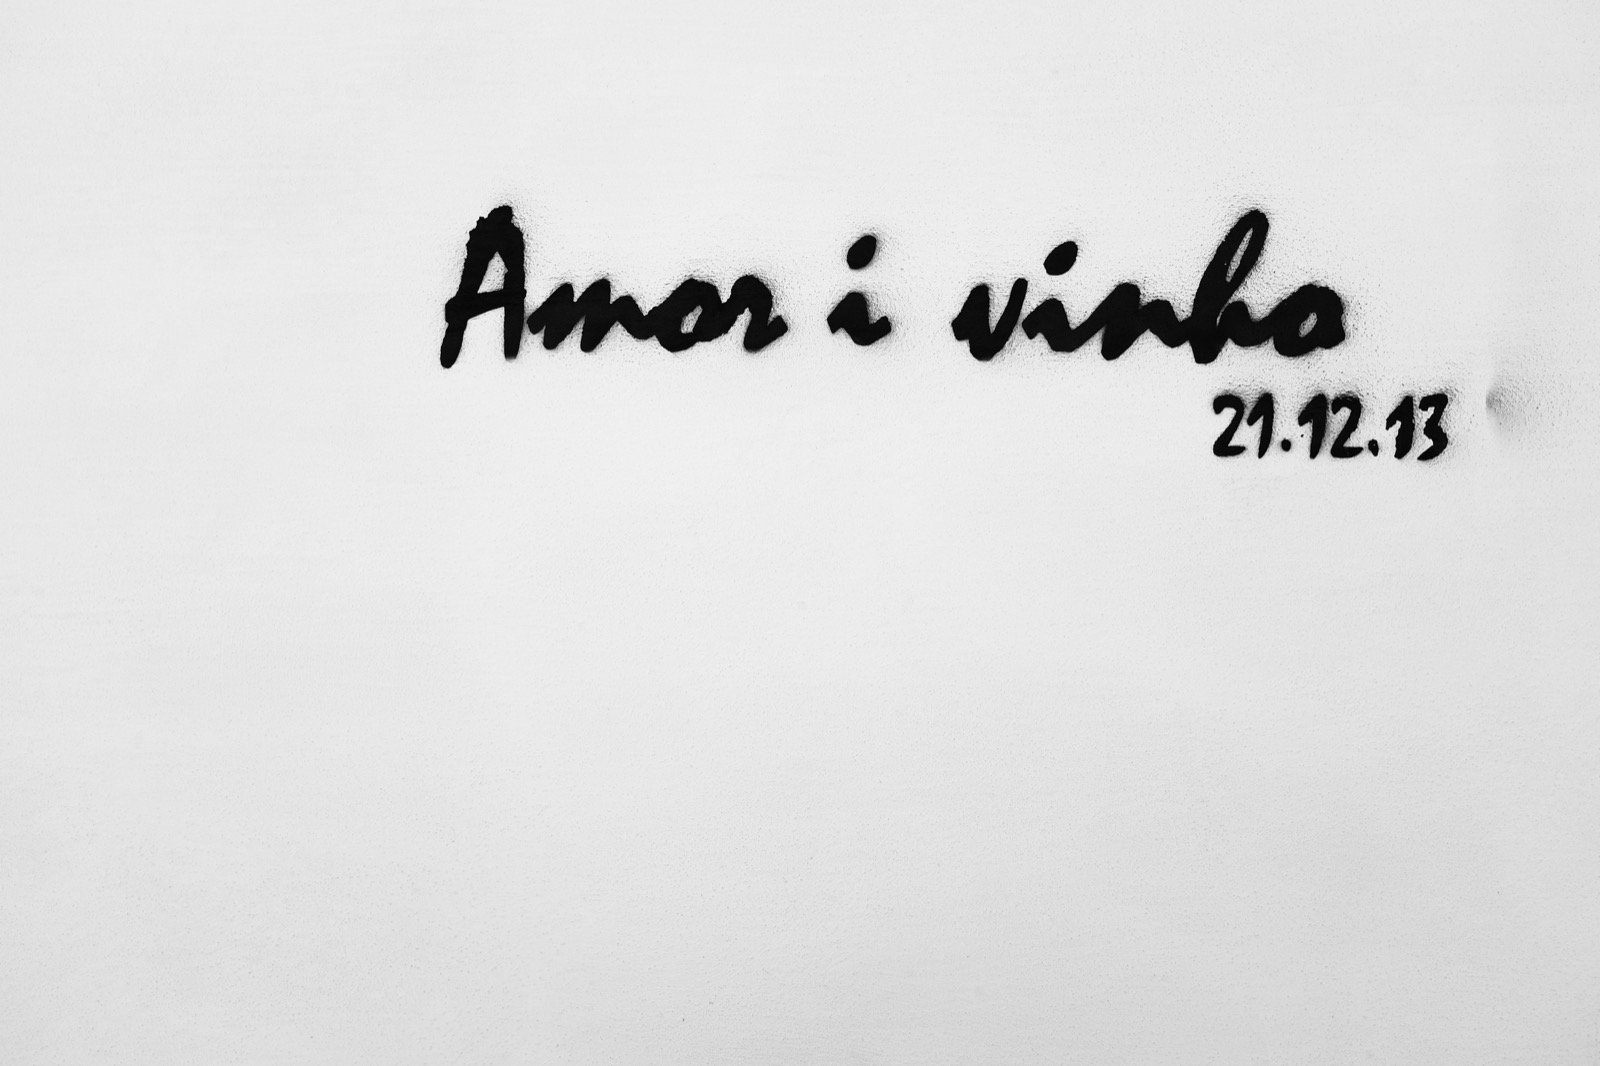 Amor i vinho
21.12.13